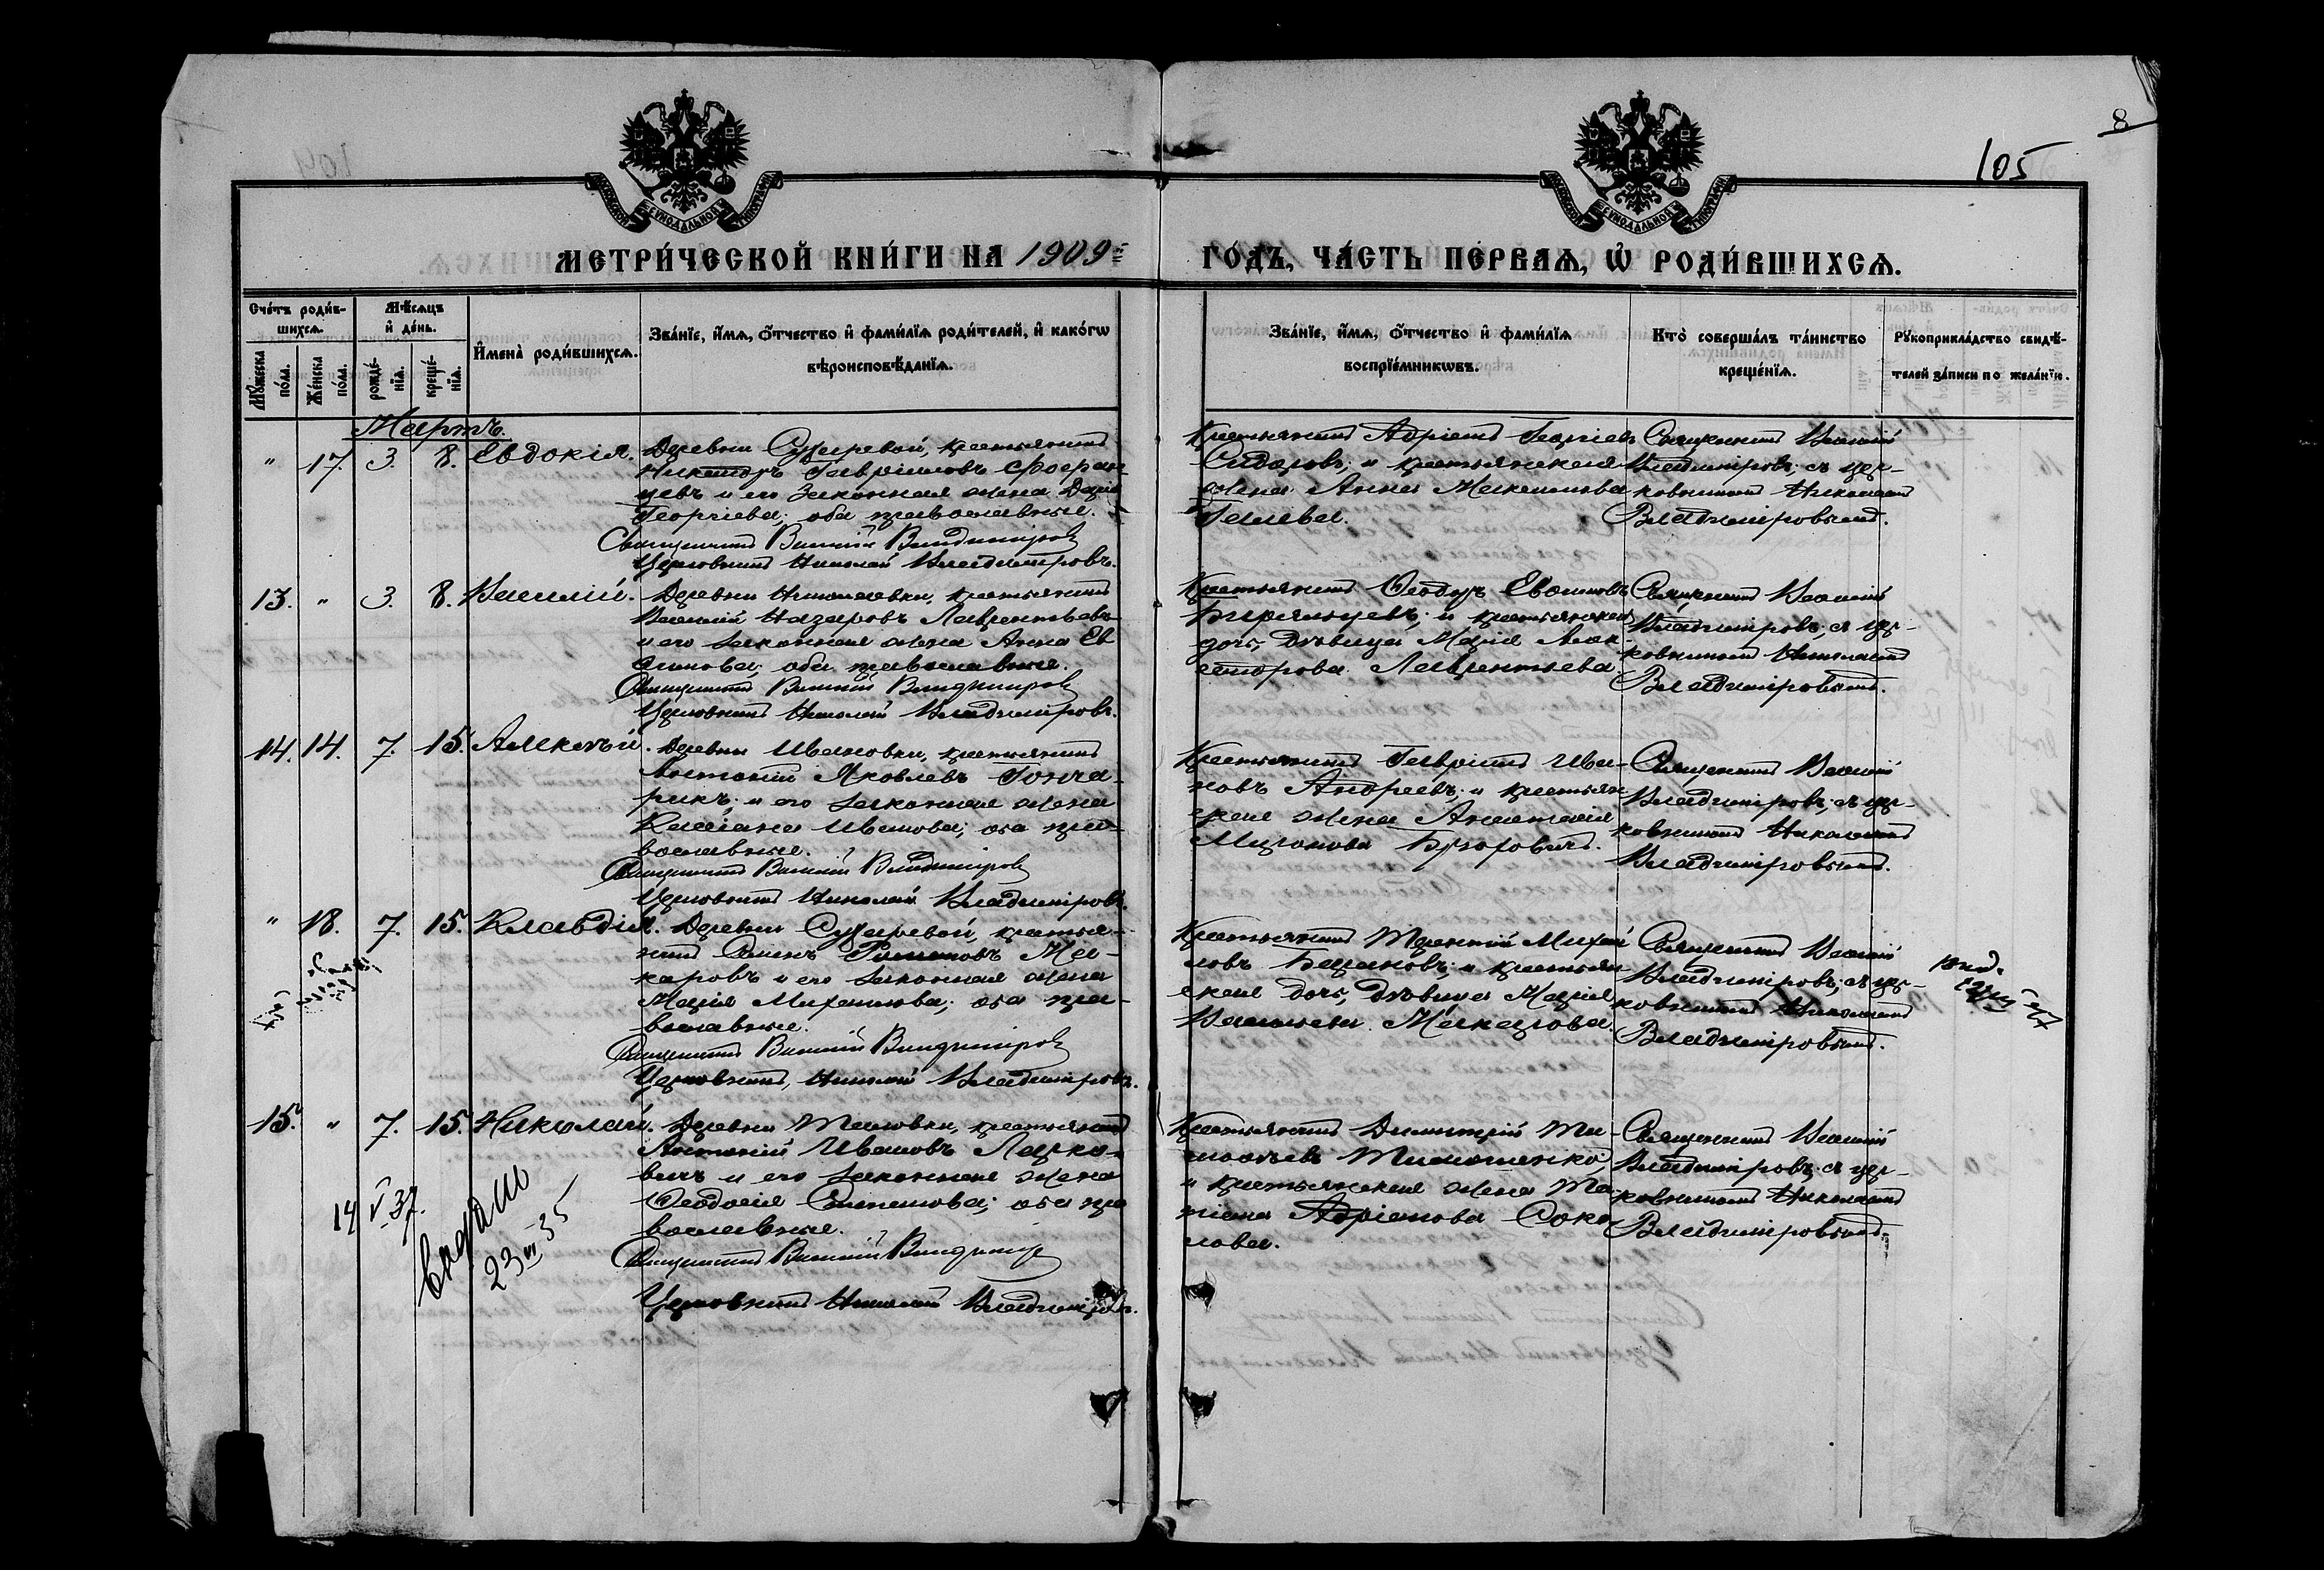 8
105
МЕТРИ́ЧЕСКОЙ КНИ́ГИ НА 1909 ГО́ДЪ, ЧА́СТЬ ПЕ́РВАѦ, Ѡ҆ РОДИ́ВШИХСѦ.
Сче́тъ роди́в-
шихсѧ.
Мѣ́сѧцъ
и҆ де́нь.
Мꙋ́жеска
по́ла.
Же́нска
по́ла.
рожде́-
нїѧ.
креще́-
нїѧ.
И҆мена̀ роди́вшихсѧ.
Зва́нїе, и҆́мѧ, ѻ҆́тчество и҆ фами́лїѧ роди́телей, и҆ како́гѡ
вѣроисповѣ́данїѧ.
Зва́нїе, и҆́мѧ, ѻ҆́тчество и҆ фами́лїѧ
воспрїе́мникѡвъ.
Кто̀ соверша́лъ та́инство
креще́нїѧ.
Рꙋкоприкла́дство свидѣ́-
телей за́писи по жела́нїю.
Мартъ.
" 17. 3. 8. Евдокія.
Деревни Сухаревой, крестьянинъ
Никаноръ Гавріиловъ
и его законная жена Дарія
Георгіева; оба православные.
Священникъ Василій Владиміровъ
Церковникъ Николай Владиміровъ.
Крестьянинъ Адріанъ Георгіевъ
Сидоровъ; и крестьянская
жена Анна Максимова
Священникъ Василій
Владиміровъ; съ цер-
ковникомъ Николаемъ
Владиміровымъ.
13. " 3. 8. Василій.
Деревни Николаевки, крестьянинъ
Василій Назаровъ Лаврентьевъ
и его законная жена Анна Ев
фимова; оба православные.
Священникъ Василій Владиміровъ
Церковникъ Николай Владиміровъ.
Крестьянинъ Ѳеодоръ Евфимовъ
и крестьянская
дочь, дѣвица Марія Алек
Лаврентьева.
Священникъ Василій
Владиміровъ; съ цер-
ковникомъ Николаемъ
Владиміровымъ.
14. 14. 7. 15. Алексѣй.
Деревни Ивановки, крестьянинъ
Антоній Яковлевъ Гонча-
рикъ; и его законная жена
Ивановна; оба пра-
вославные.
Священникъ Василій Владиміровъ
Церковникъ Николай Владиміровъ.
Крестьянинъ Гавріилъ Ива-
новъ Андреевъ; и крестьян
ская жена Анастасія
Миронова
Священникъ Василій
Владиміровъ; съ цер-
ковникомъ Николаемъ
Владиміровымъ.
" 18. 7. 15. Клавдія.
Деревни Сухаревой, крестья-
нинъ Романовъ Ма-
каровъ и его законная жена
Марія Михаилова; оба пра-
вославные.
Священникъ Василій Владиміровъ
Церковникъ, Николай Владиміровъ.
Крестьянинъ Терентій Михаи
ловъ и крестьян
ская дочь, дѣвица Марія
Васильева Макарова.
Священникъ Василій
Владиміровъ; съ цер-
ковникомъ Николаемъ
Владиміровымъ.
15. " 7. 15. Николай.
Деревни крестьянинъ
Антоній Ивановъ Лацко-
вичъ и его законная жена
Ѳеодосія оба пра
вославные.
Священникъ Василій Владиміровъ
Церковникъ Николай Владиміровъ.
Крестьянинъ Димитрій Ти-
моѳеевъ Тимошенко,
и крестьянская жена Та
тіана Адріанова Соко
лова.
Священникъ Василій
Владиміровъ; съ цер-
ковникомъ Николаемъ
Владиміровымъ.
14 V 37.
23 VI 35